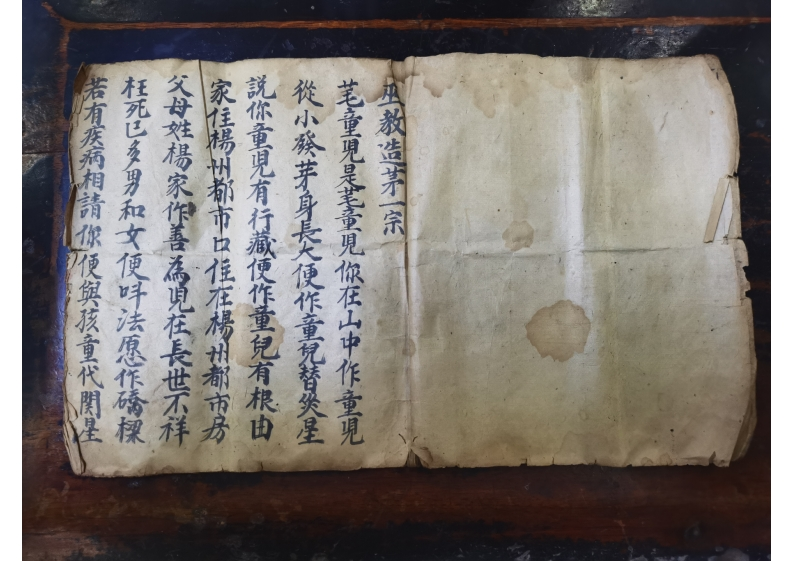 巫教造茅一宗
茅童児是茅童児你在山中作童児
從小發芽身長大便作童兒替災星
説你童児有行藏便作童兒有根由
家住楊州都市口住在楊州都市房
父母姓楊家作善為児在長世不祥
枉死已多男和女便呌法愿作橋樑
若有疾病相請你便與孩童代関星